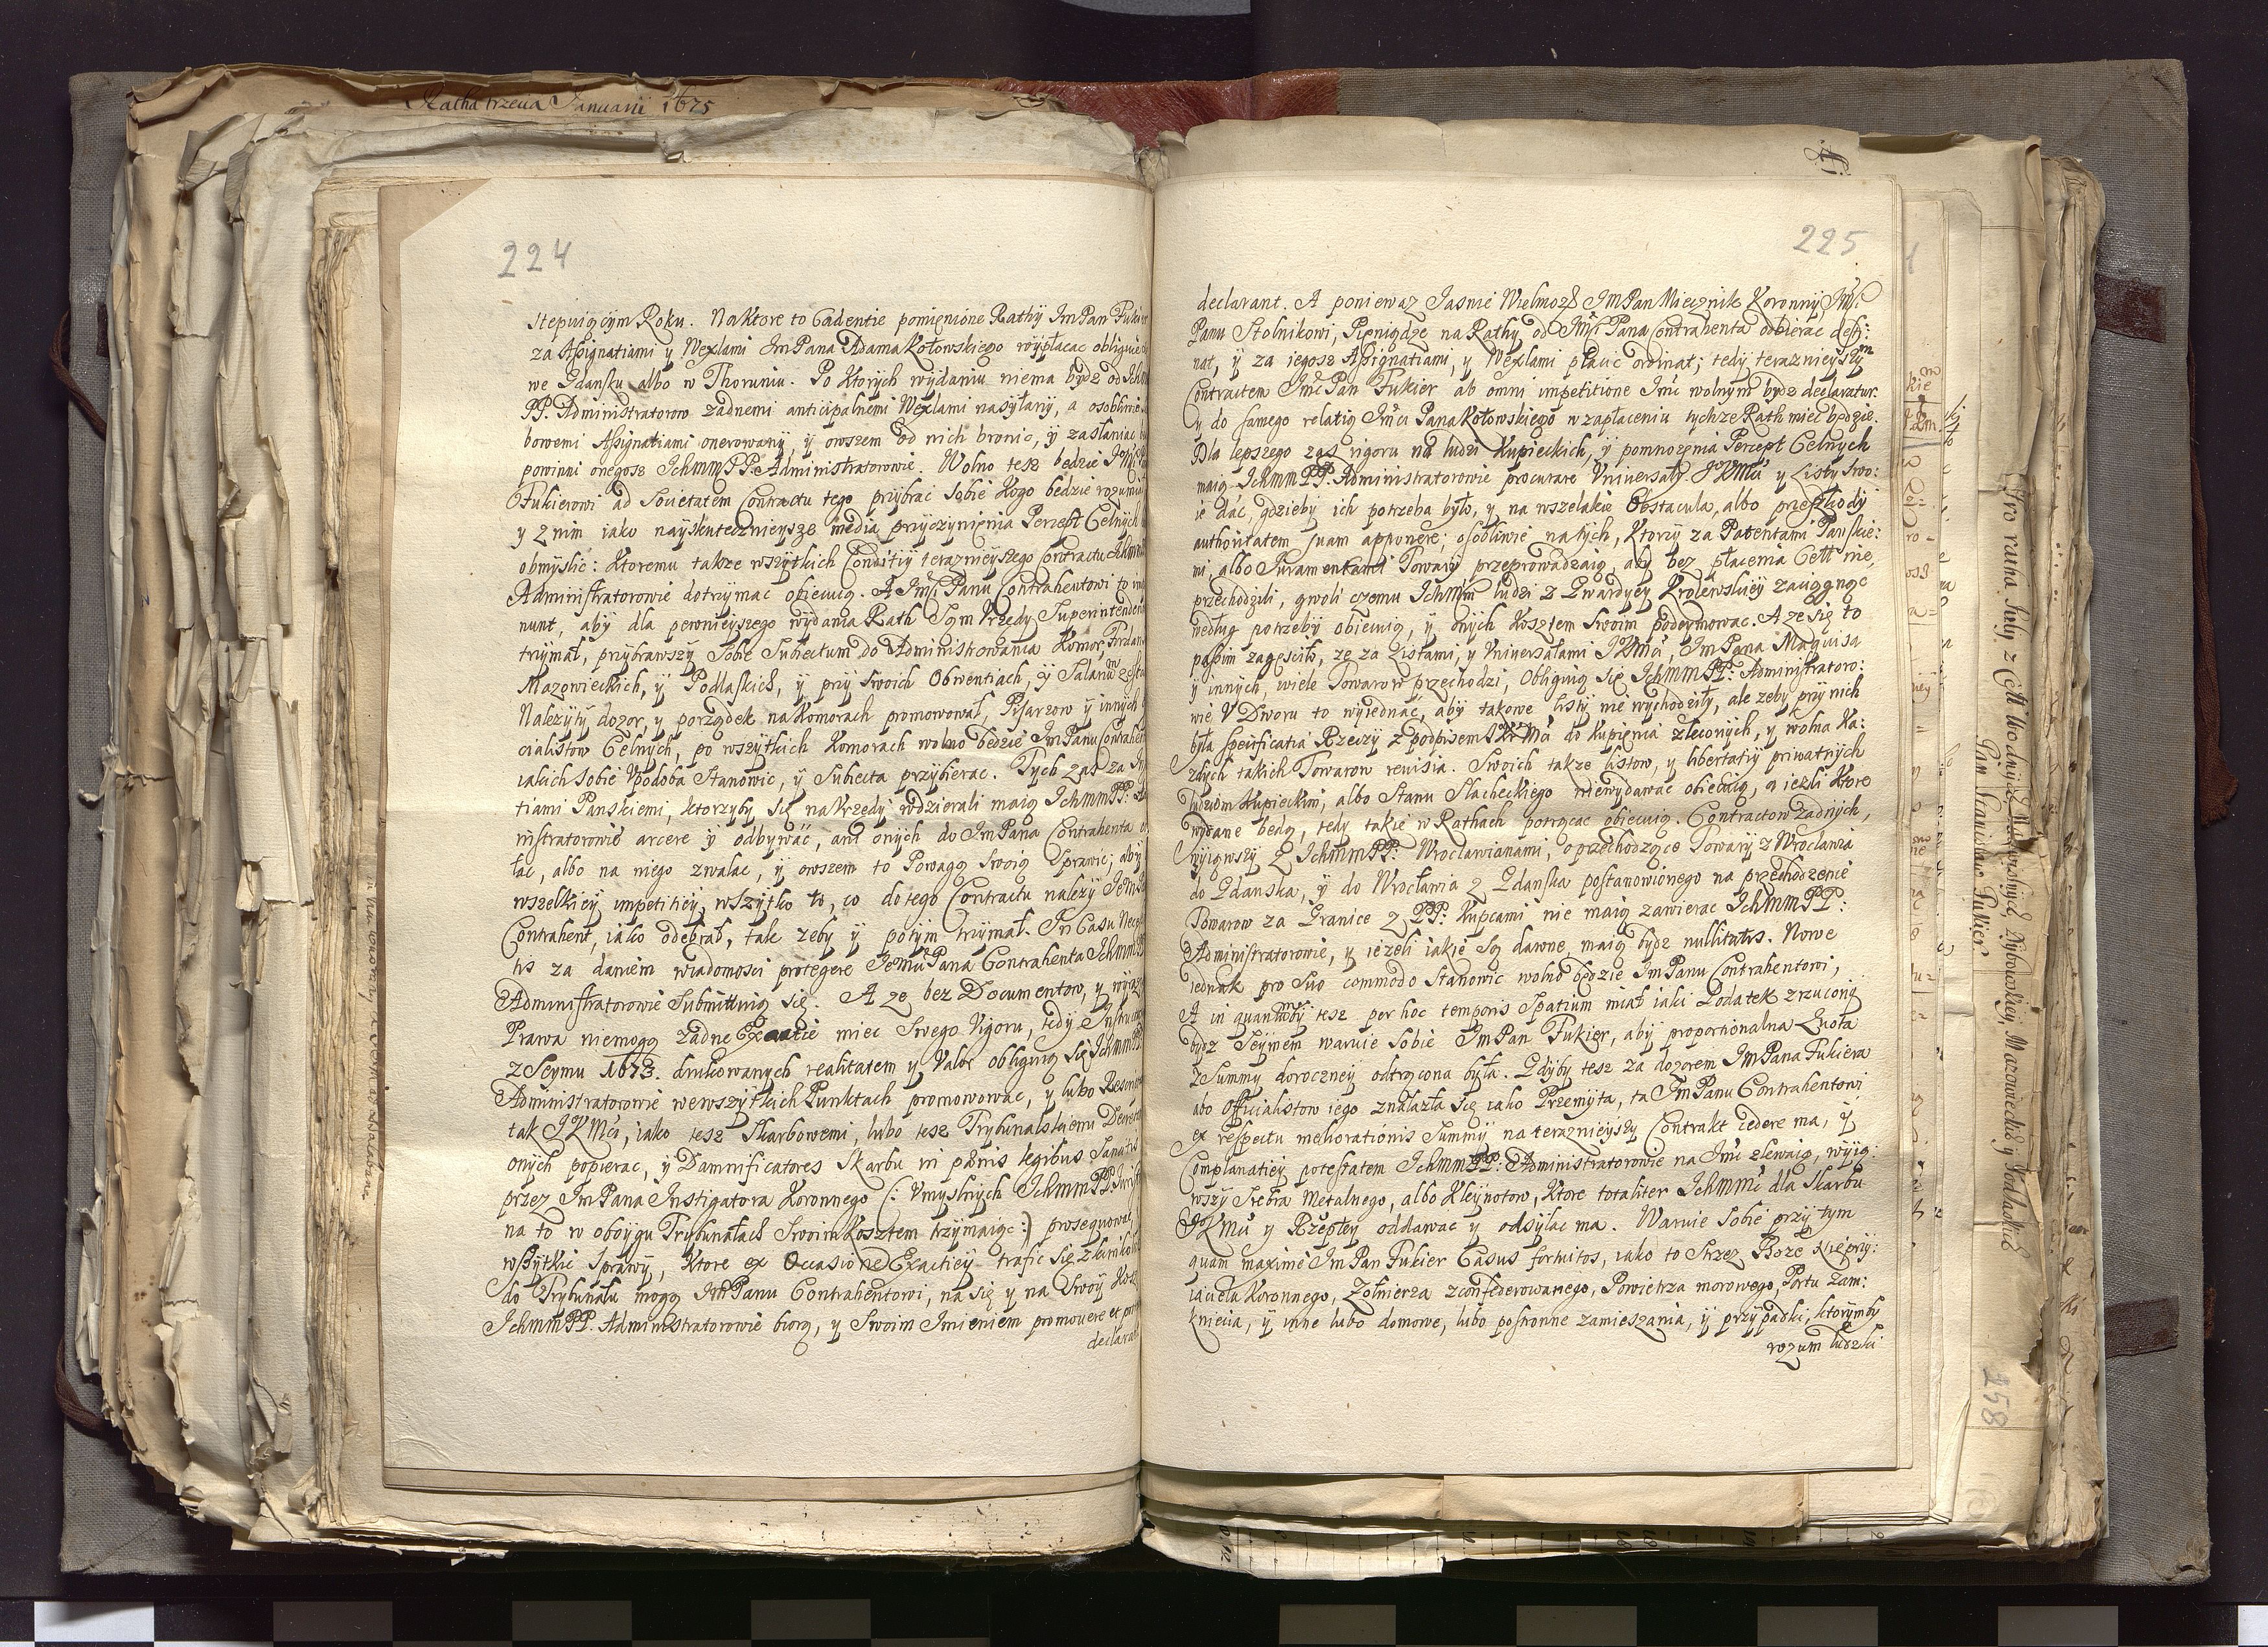 Ratha trzecia Januarii 1675
224
stępuiącym Roku. Na ktore to Cadentie pomięnione Rathy ImPan Fukier
za Assignatiami y Wexlami ImPana Adama Kotowskiego wypłacac obliguie
we Gdansku albo w Thoruniu. Po ktorych wydaniu niema bydz od Ichm
PP. Administratorow zadnemi anticipalnemi Wexlami nasyłany, a osobliwie
bowemi Assignatiami onerowany, y owszem od nich bronic, y zasłaniac
powinni onegosz IchmmPP. Administratorowie. Wolno tesz bedzie
Fukierowi ad Societatem Contractu tego przybrac Sobie kogo bedzie rozumiał
y z nim iako nayskutecznieysze media przyczynięnia Percept Celnych
obmyslic: Ktoremu takze wszytkich Conditiy teraznieyszego contractu Ichmm
Administratorowie dotrzymac obiecuią. A Imści Panu Contrahentowi to
nunt, aby dla pewnieyszego wydania Rath Sąm Vrzędy Superintendent
trzymał, przybrawszy Sobie Subiectum do Administrowania Komor, Fordan
Mazowieckich, y Podlaskich, y przy Swoich Obwentiach, y Salarium
Nalezyty dozor, y porządek na Komorach promowował, Pisarzow y innych
cialistow Celnych, po wszytkich Komorach wolno będzie ImPanu Contrahent
iakich Sobie Vpodoba Stanowic, y Subiecta przybierac. Tych zas za
tiami Panskiemi, ktorzyby Się na Vrzędy wdzierali maią IchmmPP:
nistratorowie arcere y odbywac, ani onych do ImPana Contrahenta
łac, albo na niego zwalac, y owszem to Powagą Swoią Sprawic; aby
wszelkiey impetitiey, wszytko to, co do tego Contractu nalezy
Contrahent, iako odebrał, tak zeby y potym trzymał. In Casu
tis za daniem wiadomosci protegere Iemu Pana Contrahenta Ichmm
Administratorowie Submittuią się. A ze bez Documentow, y
Prawa niemogą zadne Exactie miec Swego Vigoru, tedy
z Seymu 1673. drukowanych realitatem y Valor obliguią Się Ichmm
Administratorowie wewszytkich Punktach promowowac, y lubo
tak IKMci, iako tesz Skarbowemi, lubo tesz Trybunalskiemi
onych popierac, y Damnificatores Skarbu in pænis legibus
przez ImPana Instigatora Koronnego (: Vmyslnych IchmmPP.
na to w oboygu Trybunałach Swoim Kosztem trzymaiąc :) prosequowac
wszytkie Sprawy, Ktore ex Occasione Exactiey trafic Się
do Trybunału mogą ImPanu Contrahentowi, na Się y na Swoy
IchmmPP. Administratorowie biorą, y Swoim Imieniem promouere et
declarant
225
declarant. A poniewaz Iasnie Wielmoz ImPan Miecznik Koronny Imści
Panu Stolnikowi, Pieniądze na Rathy, od Imści Pana Contrahenta odbierac desty:
nat, y za iegosz Assignatiami, y Wexlami płacic ordinat; tedy terazniejszym
Contractem Imć Pan Fukier ab omni impetitione Imci wolnym bydz declaratur.
y do samego relatią Imci Pana Kotowskiego w zapłaceniu tychze Rath miec bedzie.
Dla lepszego zas rigoru na ludzi Kupieckich, y pomnozęnia Percept Celnych
maią IchmmPP. Administratorowie procurare Vniuersały IKMci y Listy Swo:
ie dac, gdzieby ich potrzeba było, y na wszelakie Obstacula, albo przeszkody
authoritatem suam apponere; osobliwie natych, Ktorzy za Patentami Panskie:
mi, albo Iuramentami Towary przeprowadzaią, aby bez płacenia Cełł nie,
przechodzili, gwoli czemu Ichmm ludzi z Gwardyey Krolewskiey zaciągnąc
według potrzeby obiecuią, y onych Kosztem Swoim podeymowac. A ze się to
passim zagęsciło, ze za Listami, y Vniuersałami IKMci, ImPana Margwisa
y innych, wiele Towarow przechodzi, Obliguią Się IchmmPP: Administratoro:
wie V Dworu to wyiednac, aby takowe listy nie wychodziły, ale zeby przy nich
była specificatia Rzeczy z podpisem IKMci do kupięnia zleconych, y wolna Ka:
zdych takich Towarow reuisia. Swoich takze listow, y libertatiy priwatnych
ludziom Kupieckim, albo Stanu Slacheckiego niewydawac obiecuią, a iezli ktore
wydane będą, tedy takie w Rathach potrącac obiecuią. Contractow zadnych,
wyiąwszy z IchmmPP: Wrocławianami, o przechodzące Towary z Wrocławia
do Gdanska, y do Wrocławia z Gdanska postanowionego na przechodzenie
Towarow za Granice z PP: Kupcami nie maią zawierac IchmmPP:
Administratorowie, y iezeli iakie Są dawne, maią bydz nullitatis. Nowe
iednak pro Suo commodo Stanowic wolno będzie ImPanu Contrahentowi,
A in quantumby tesz per hoc temporis Spatium miał iaki Podatek zrzucony
bydz Seymem waruie sobie ImPan Fukier, aby proportionalna Quota
z Summy doroczney odtrącona była. Gdyby tesz za dozorem ImPana Fukiera
abo Officialistow iego znalazła się iako Przemyta, ta ImPanu Contrahentowi
ex respectu meliorationis Summy na terazniejszy Contrakt cedere ma, y
Complanatiey potestatem IchmmPP: Administratorowie na Imci zlewaią, wyią:
wszy Srebra Metalnego, albo Kleynotow, Ktore totaliter Ichmmci dla Skarbu
IKMci y Rzeptey oddawac y odsyłac ma. Waruie Sobie przy tym
quam maxime ImPan Fukier Casus fortuitos, iako to Strzez Boze Nieprzy:
iaciela Koronnego, Zołnierza zconfederowanego, Powietrza morowego, Portu zam:
knięcia, y inne lubo domowe, lubo postronne zamieszania, y przypadki, ktorymby
rozum ludzki
Pan Stanisław Fukier
258